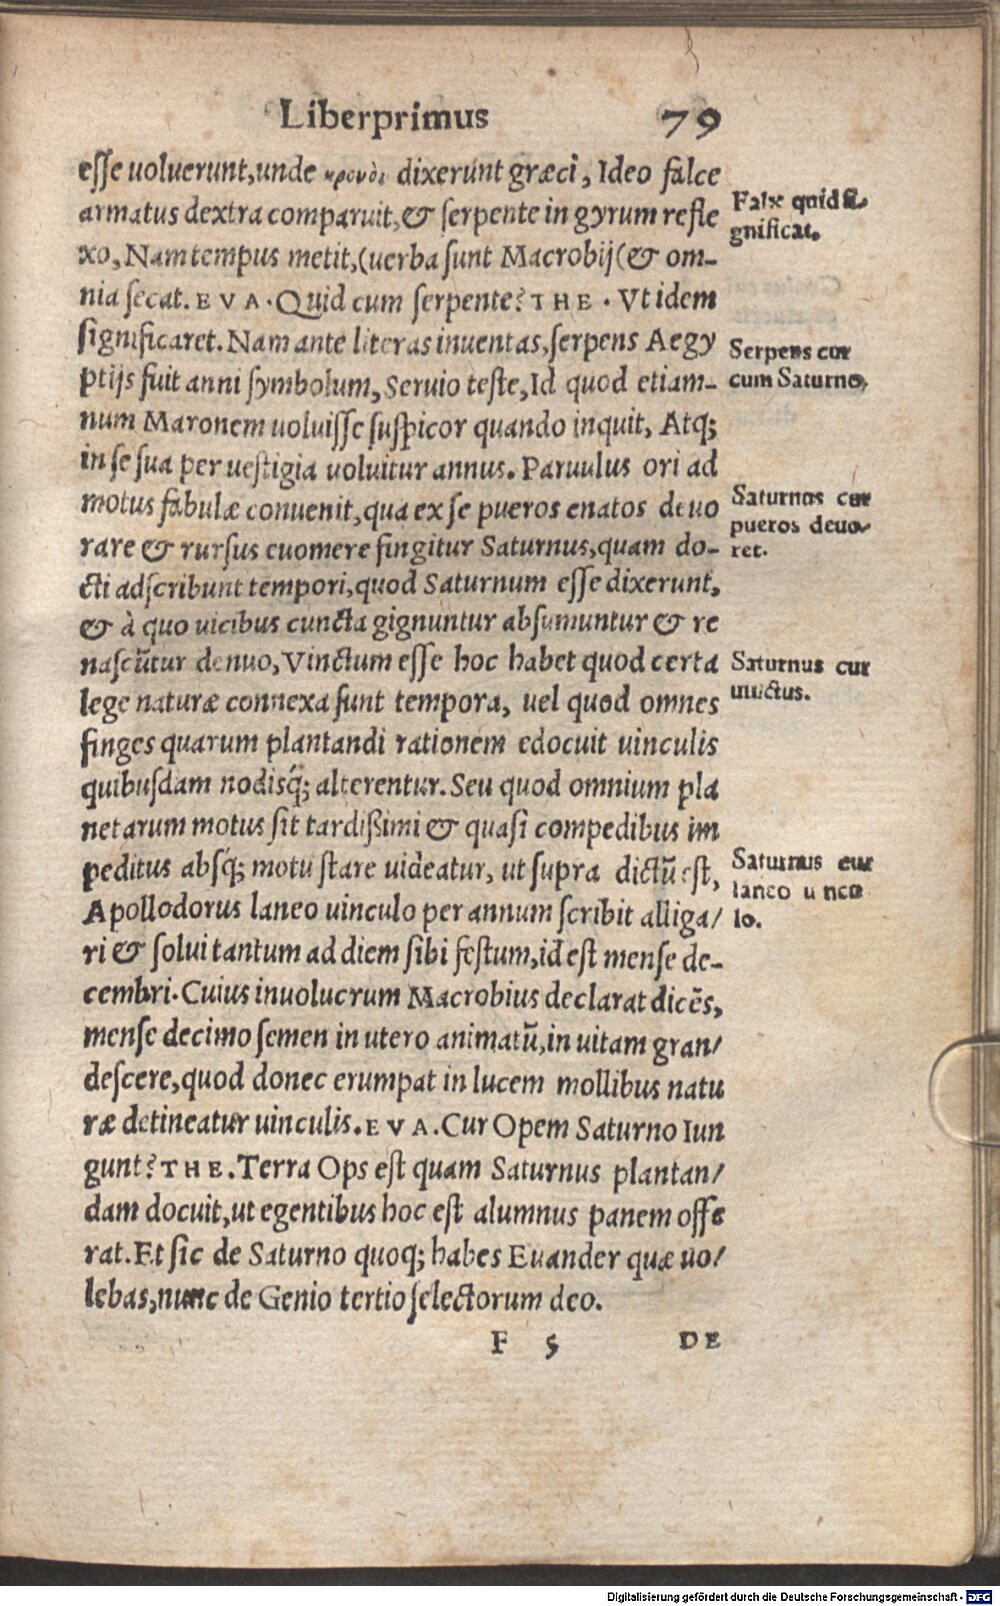 Liber primus 79
esse uoluerunt, unde κρονὸι dixerunt græci, Ideo falce
armatus dextra comparuit, & serpente in gyrum refle
xo, Nam tempus metit, (uerba sunt Macrobij(& om-
nia secat. EVA. Quid cum serpente? THE. Vt idem
significaret. Nam ante literas inuentas, serpens Aegy
ptijs fuit anni symbolum, Seruio teste, Id quod etiam-
num Maronem uoluisse suspicor quando inquit, Atq;
in se sua per uestigia uoluitur annus. Paruulus ori ad
motus fabulæ conuenit, qua ex se pueros enatos deuo
rare & rursus euomere fingitur Saturnus, quam do-
cti adscribunt tempori, quod Saturnum esse dixerunt,
& à quo uicibus cuncta gignuntur absumuntur & re
nascũtur denuo, Vinctum esse hoc habet quod certa
lege naturæ connexa sunt tempora, uel quod omnes
finges quarum plantandi rationem edocuit uinculis
quibusdam nodisq́; alterentur. Seu quod omnium pla
netarum motus sit tardißimi & quasi compedibus im
peditus absq́; motu stare uideatur, ut supra dictũ est,
Apollodorus laneo uinculo per annum scribit alliga/
ri & solui tantum ad diem sibi festum, id est mense de-
cembri. Cuius inuolucrum Macrobius declarat dicẽs,
mense decimo semen in utero animatũ, in uitam gran/
descere, quod donec erumpat in lucem mollibus natu
ræ detineatur uinculis. EVA. Cur Opem Saturno Iun
gunt? THE. Terra Ops est quam Saturnus plantan/
dam docuit, ut egentibus hoc est alumnus panem offe
rat. Et sic de Saturno quoq; habes Euander quæ uo/
lebas, nunc de Genio tertio selectorum deo.
F 5 DE
Falx quid si-
gnificat.
Serpens cur
cum Saturno,
Saturnus cur
pueros deuo-
ret.
Saturnus cur
uinctus.
Saturnus cur
laneo uincu
lo.
Digitalisierung gefördert durch die Deutsche Forschungsgemeinschaft - DFG